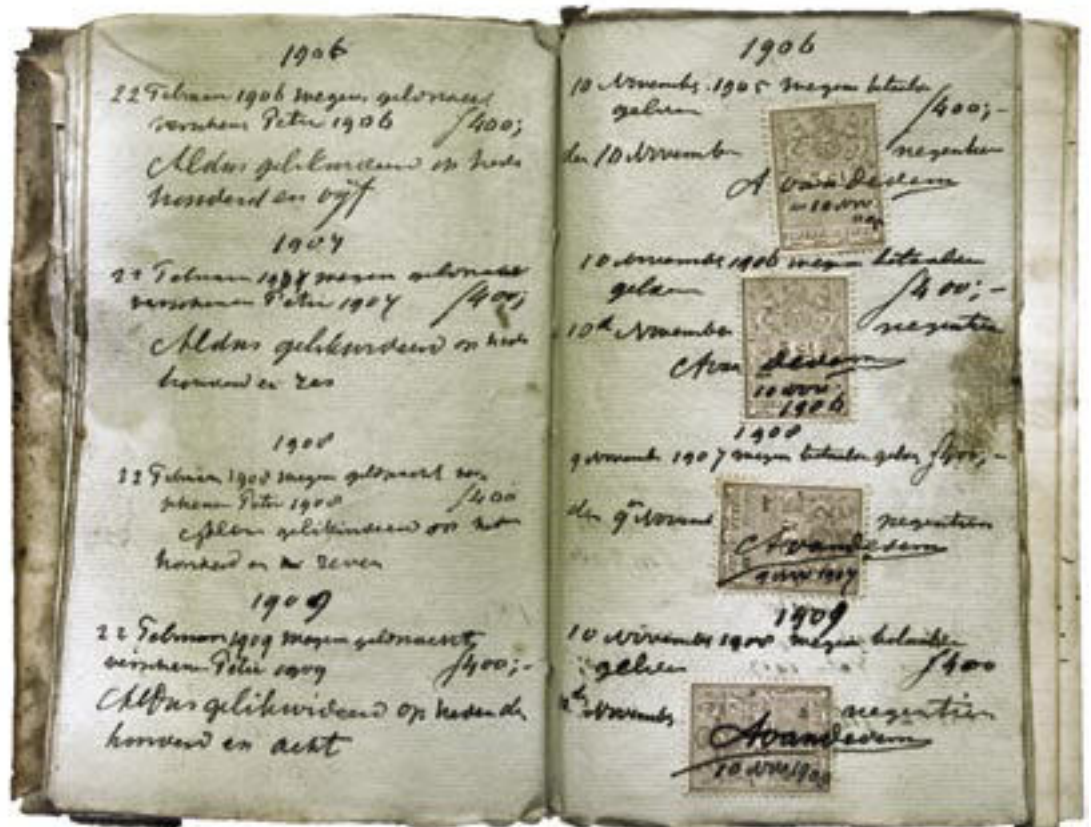 1906
22 Februari 1906 wegens geldpacht
verschenen Petri 1906 ƒ400;
Aldus gelikwideerd op heden
honderd en vijf
1907
22 Februari 1907 wegens geldpacht
verschenen Petri 1907 ƒ400;
Aldus gelikwideerd op heden
honderd en zes
1908
22 Februari 1908 wegens geldpacht ver-
schenen Petri 1908 ƒ400
Aldus gelikwideerd op heden
honderd en zeven
1909
22 Februari 1909 wegens geldpacht
verschenen Petri 1909 ƒ400;-
Aldus gelikwideerd op heden de
honderd en acht
1906
10 November 1905 wegens betaalde
gelden ƒ400;-
den 10 November negentien
A van Dedem
10 Nov.
10 November 1906 wegens betaalde
gelden ƒ400;-
10de November negentien
A van Dedem
10 Nov.
1906
1908
9 November 1907 wegens betaalde gelden ƒ400;-
den 9en November negentien
A van Dedem
9 Nov 1907
1909
10 November 1908 wegens betaalde
gelden ƒ400
November negentien
A van Dedem
10 Nov 1908